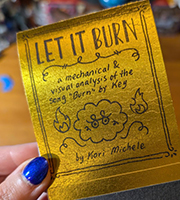 LET IT BURN
a mechanical &
visual analysis of the
song "Burn" by Key
by Kori Michele